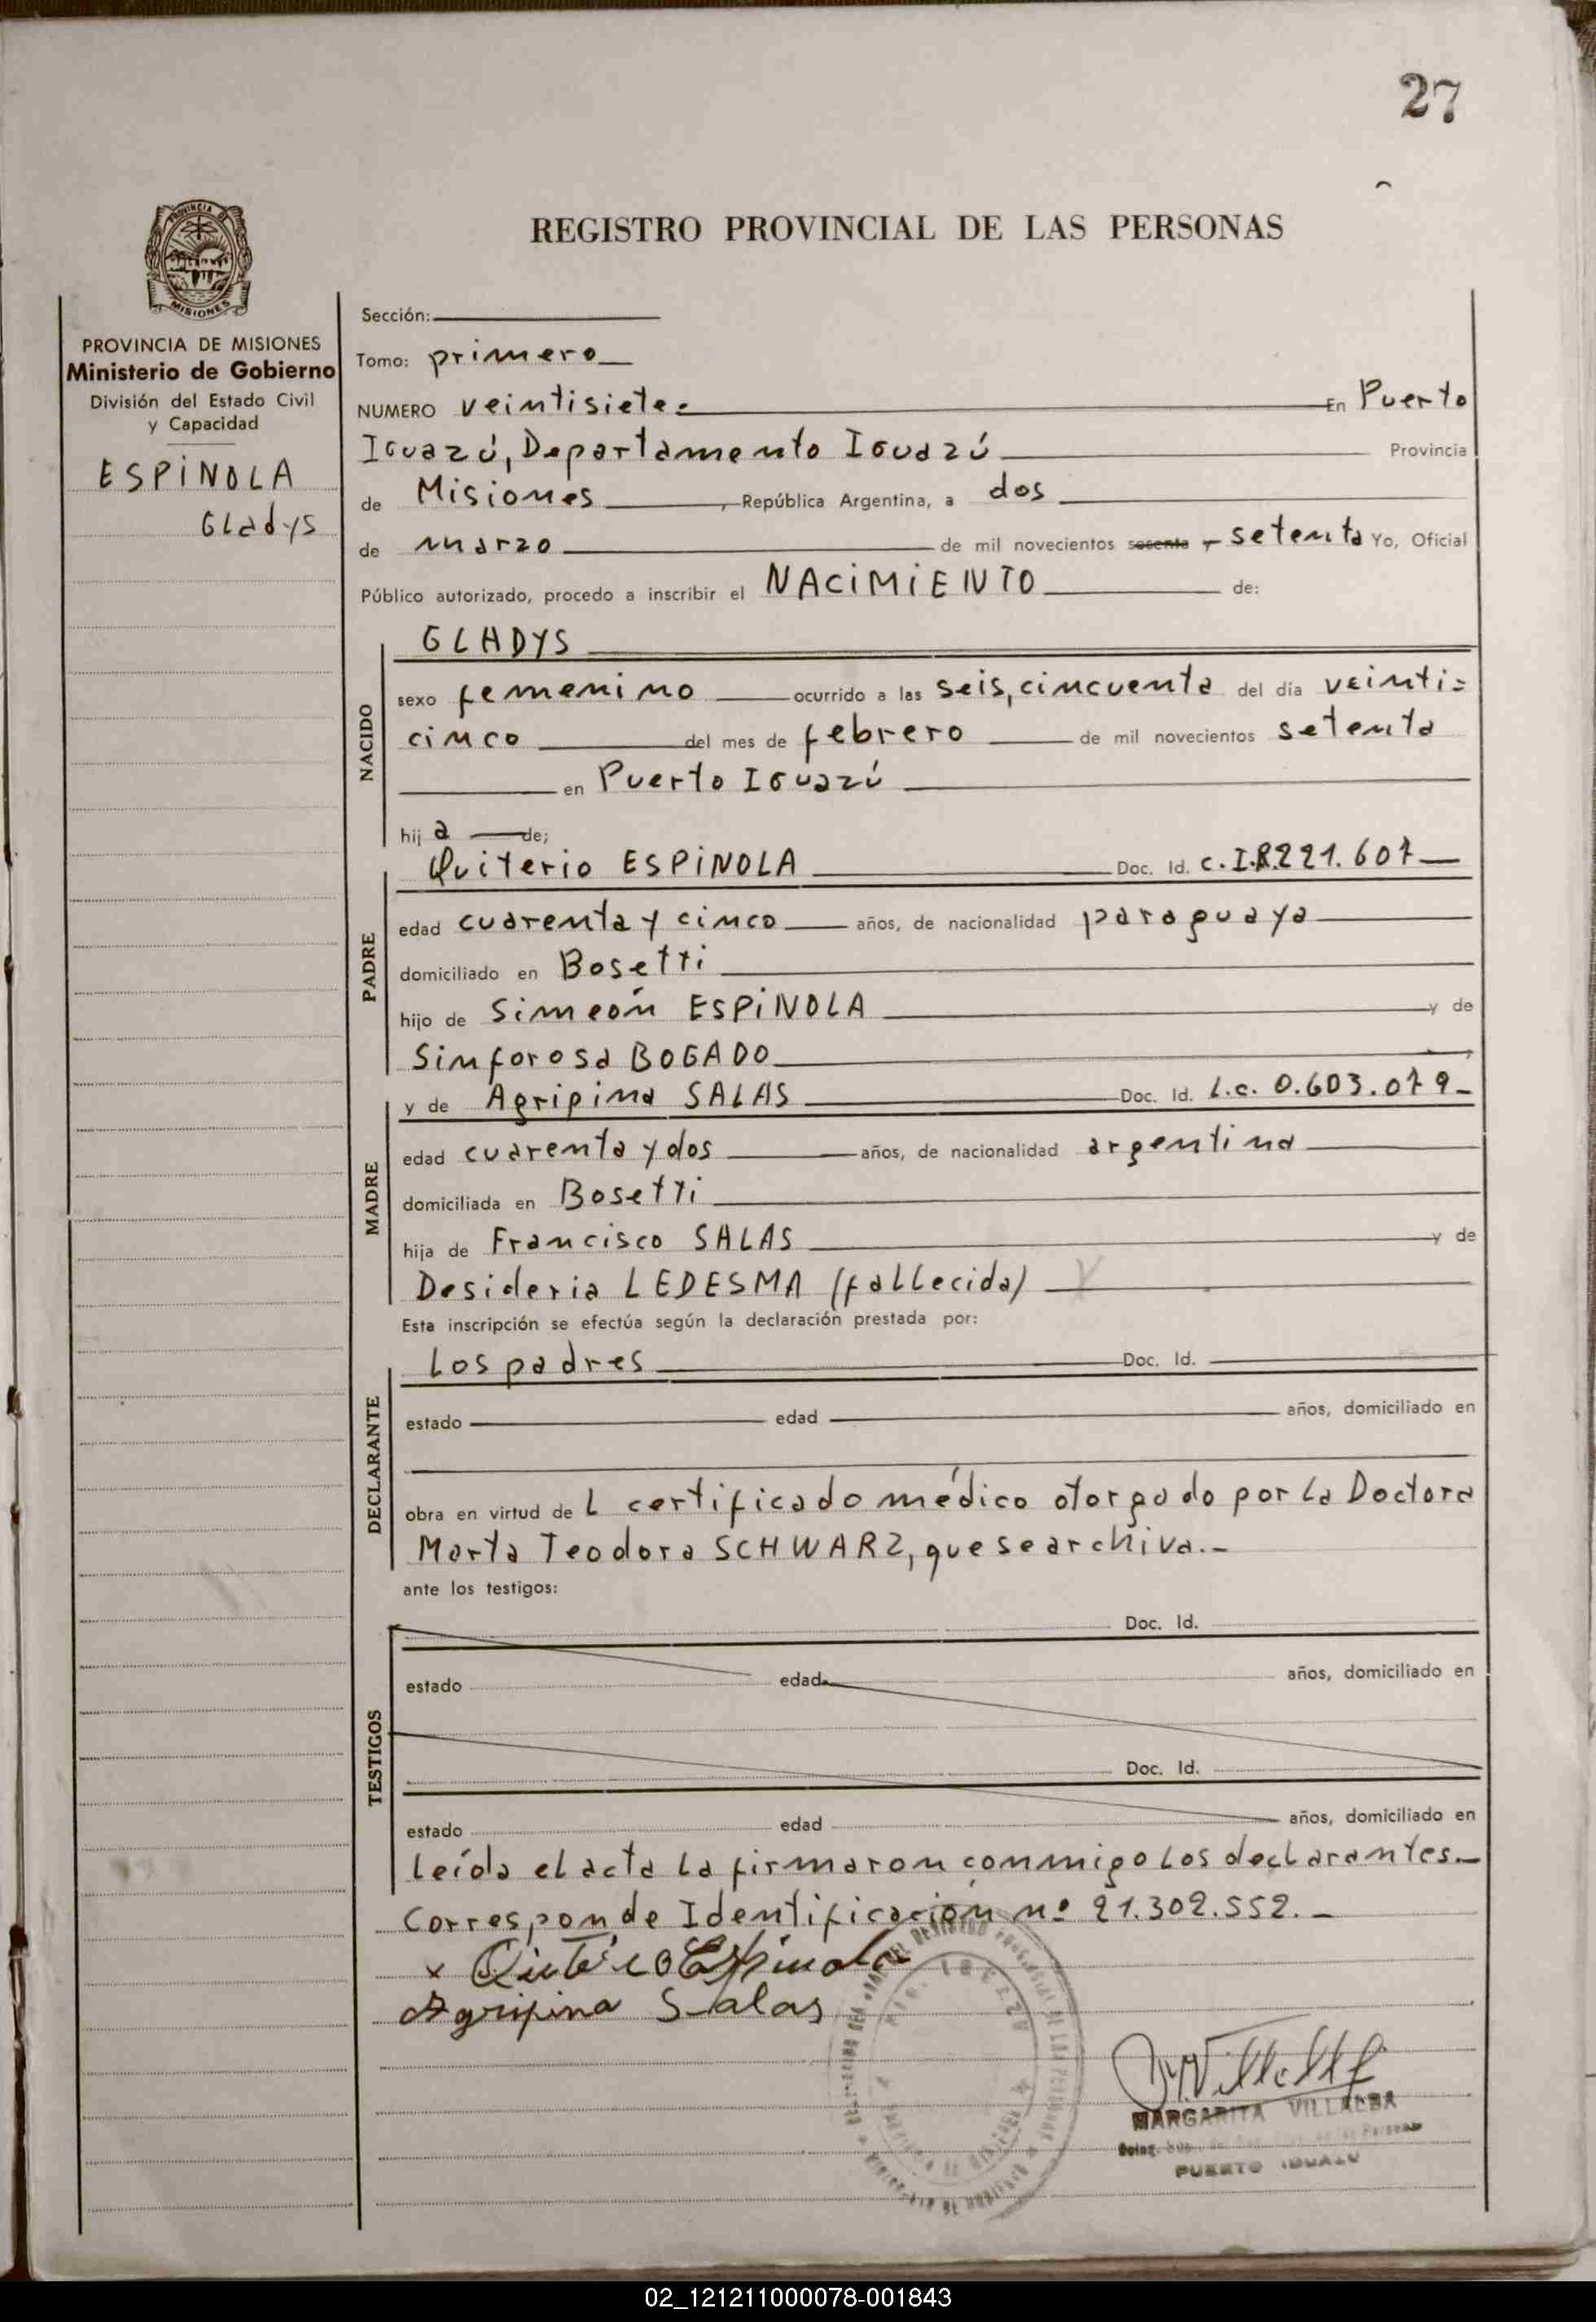 27
REGISTRO PROVINCIAL DE LAS PERSONAS
PROVINCIA DE
MISIONES
PROVINCIA DE MISIONES
Ministerio de Gobierno
División del Estado Civil
y Capacidad
ESPINOLA
Gladys
Sección:
Tomo: primero
NUMERO veintisiete.- En Puerto
Iguazú, Departamento Iguazú Provincia
de Misiones, República Argentina, a dos
de marzo de mil novecientos sesenta - setenta Yo, Oficial
Público autorizado, procedo a inscribir el NACIMIENTO de:
GLADYS
NACIDO
sexo femenino ocurrido a las seis, cincuenta del día veinti=
cinco del mes de febrero de mil novecientos setenta
en Puerto Iguazú
hij a de;
PADRE
Quiterio ESPINOLA Doc. Id. C.I.R.221.607
edad cuarenta y cinco años, de nacionalidad paraguaya
domiciliado en Bosetti
hijo de Simeón ESPINOLA y de
Sinforosa BOGADO
MADRE
y de Agripina SALAS Doc. Id. L.c. 0.603.079-
edad cuarenta y dos años, de nacionalidad argentina
domiciliada en Bosetti
hija de Francisco SALAS y de
Desideria LEDESMA (fallecida)
Esta inscripción se efectúa según la declaración prestada por:
DECLARANTE
Los padres Doc. Id.
estado edad años, domiciliado en
obra en virtud de L certificado médico otorgado por la Doctora
Marta Teodora SCHWARZ, que se archiva.-
ante los testigos:
TESTIGOS
Doc. Id.
estado edad años, domiciliado en
Doc. Id.
estado edad años, domiciliado en
Leída el acta la firmaron conmigo los declarantes.-
Corresponde Identificación nº 21.302.552.-
x Quiterio Espinola
Agripina Salas
MARGARITA VILLALBA
PUERTO IGUAZU
02_121211000078-001843